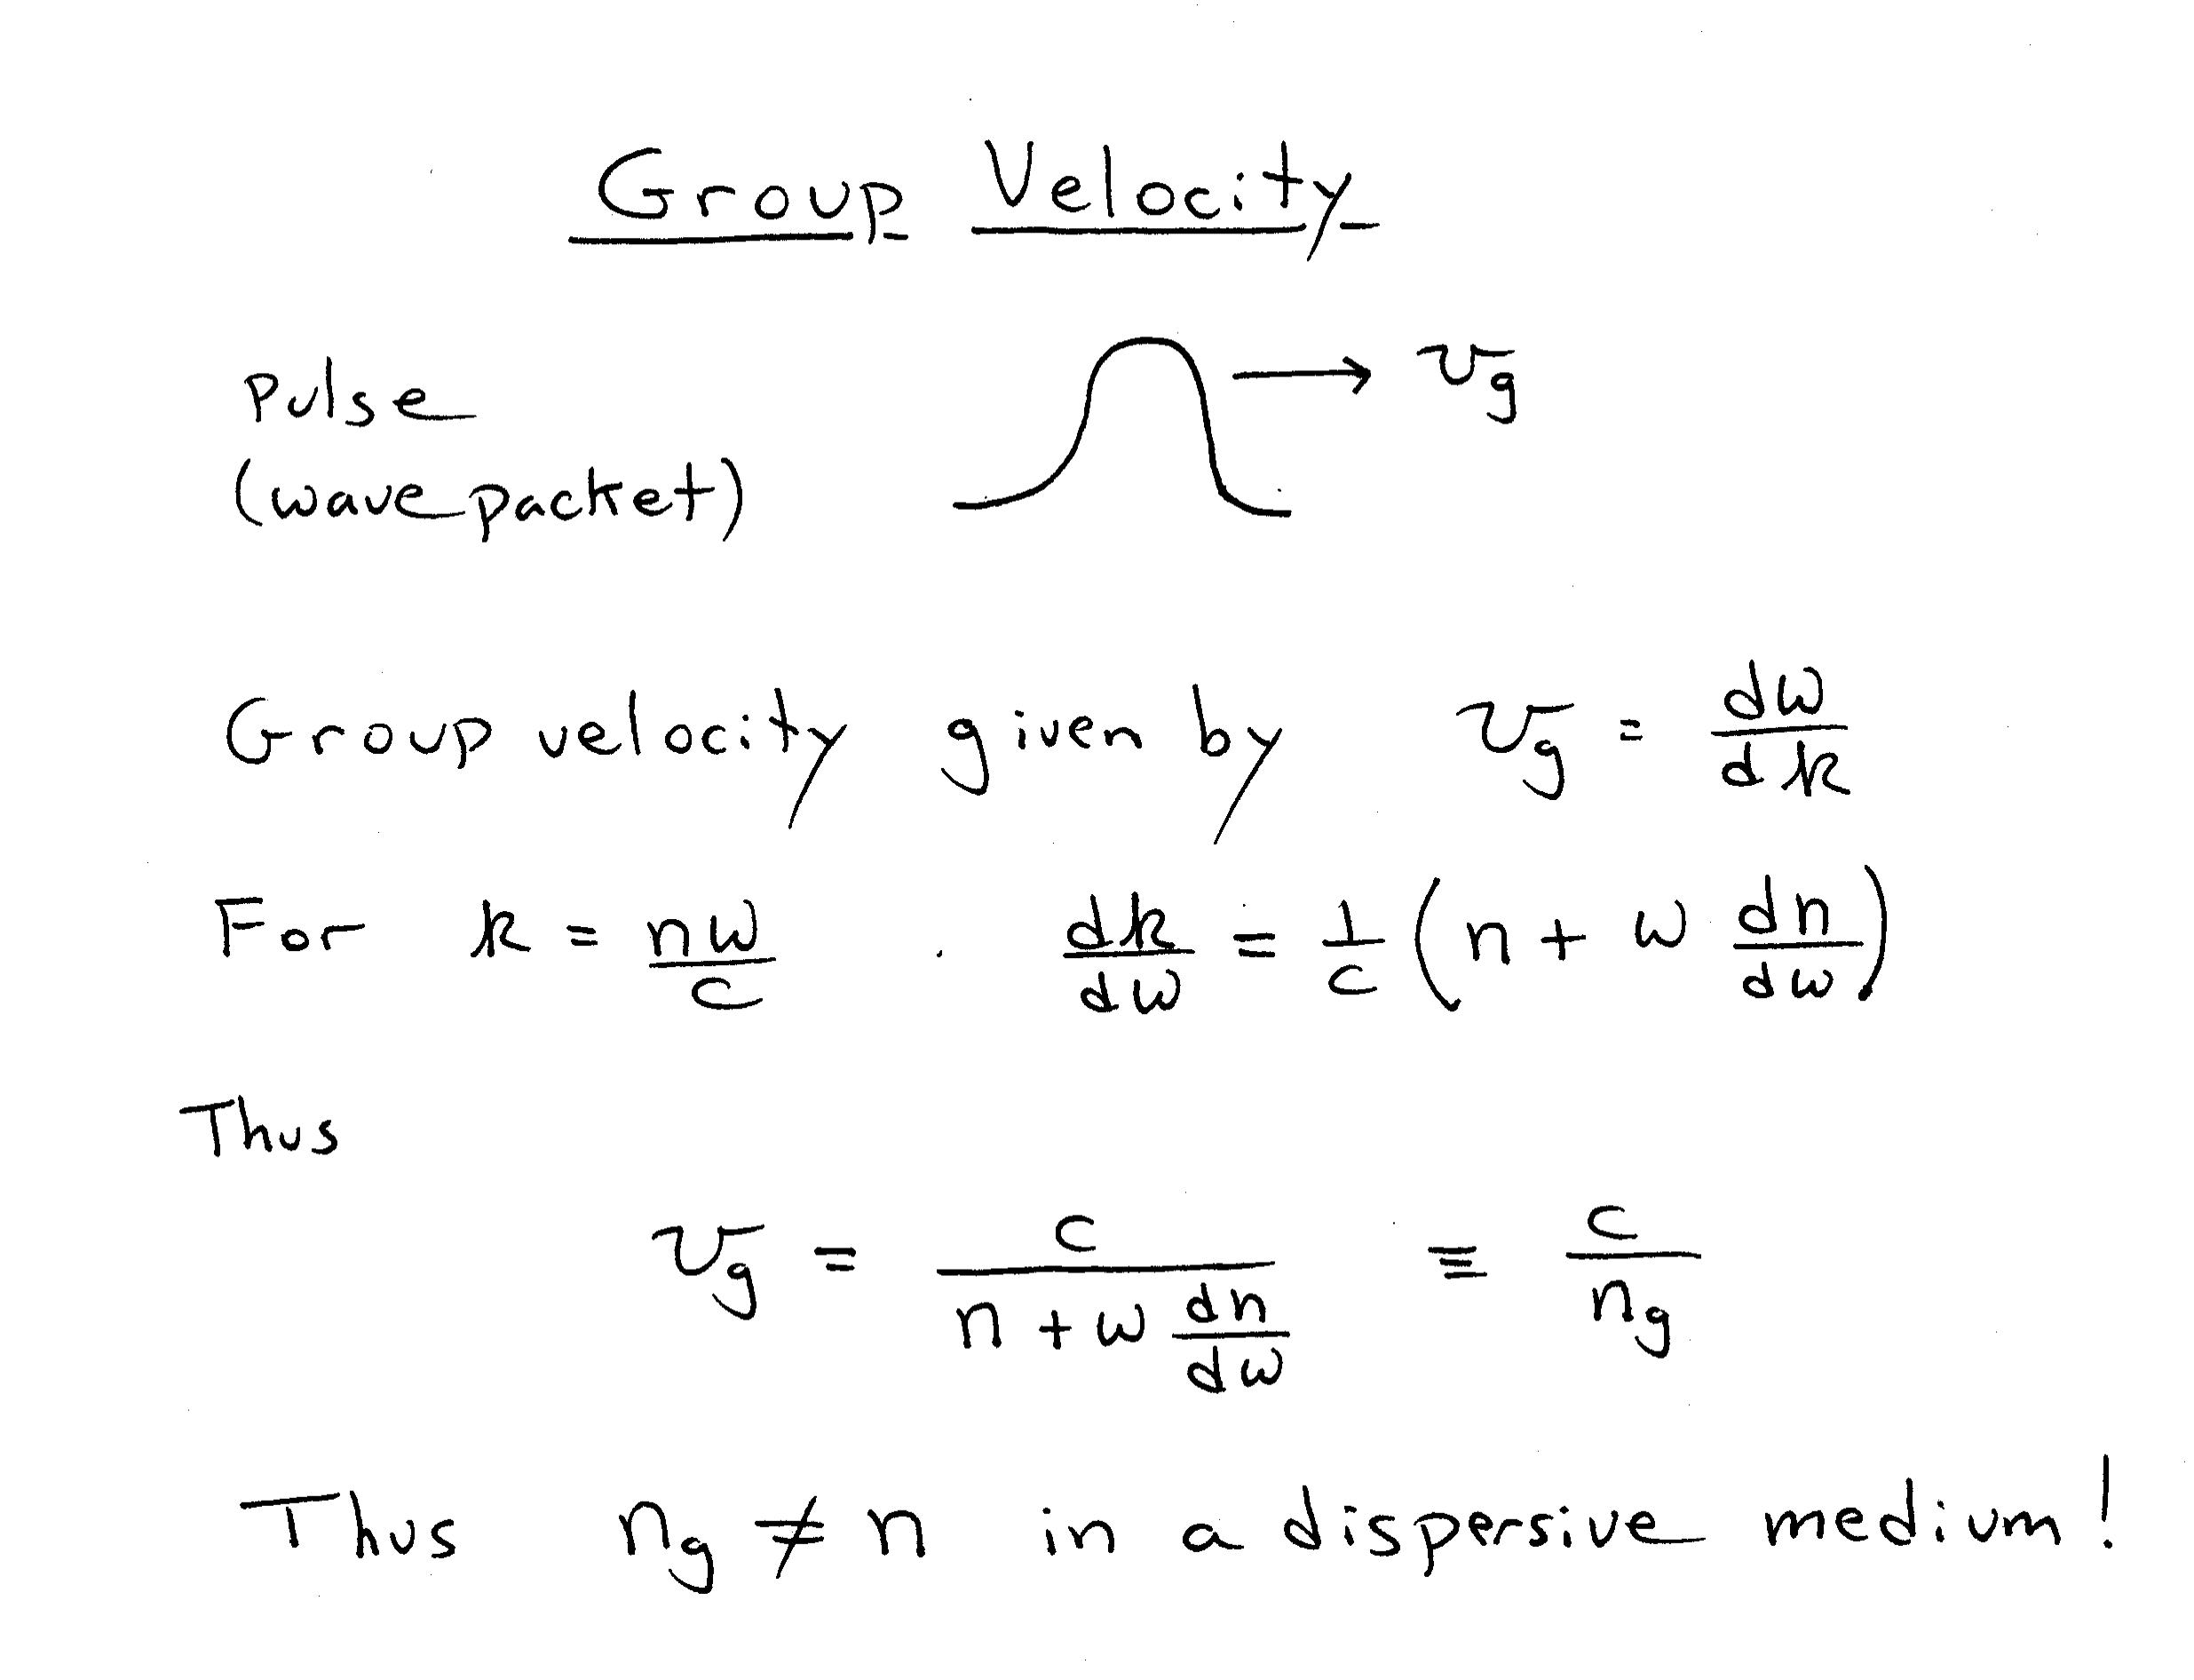 Group Velocity
Pulse → v_g
(wave packet)
Group velocity given by v_g = dω/dk
For k = nω/c . dk/dω = 1/c (n + ω dn/dω)
Thus
v_g = c/(n + ω dn/dω) ≡ c/n_g
Thus n_g ≠ n in a dispersive medium!